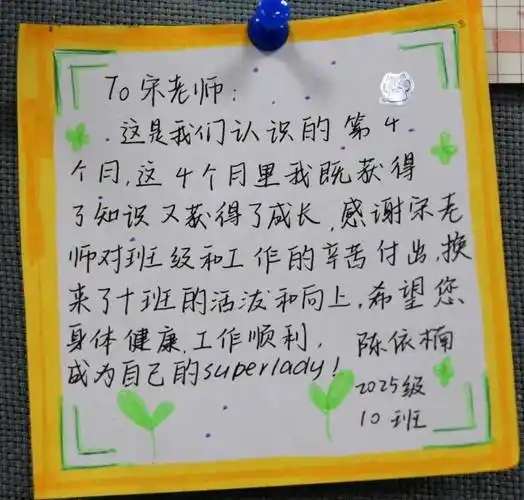 To 宋老师：
这是我们认识的第4
个月，这4个月里我既获得
了知识又获得了成长，感谢宋老
师对班级和工作的辛苦付出，换
来了十班的活泼和向上，希望您
身体健康，工作顺利，
成为自己的superlady！
陈依楠
2025级
10班